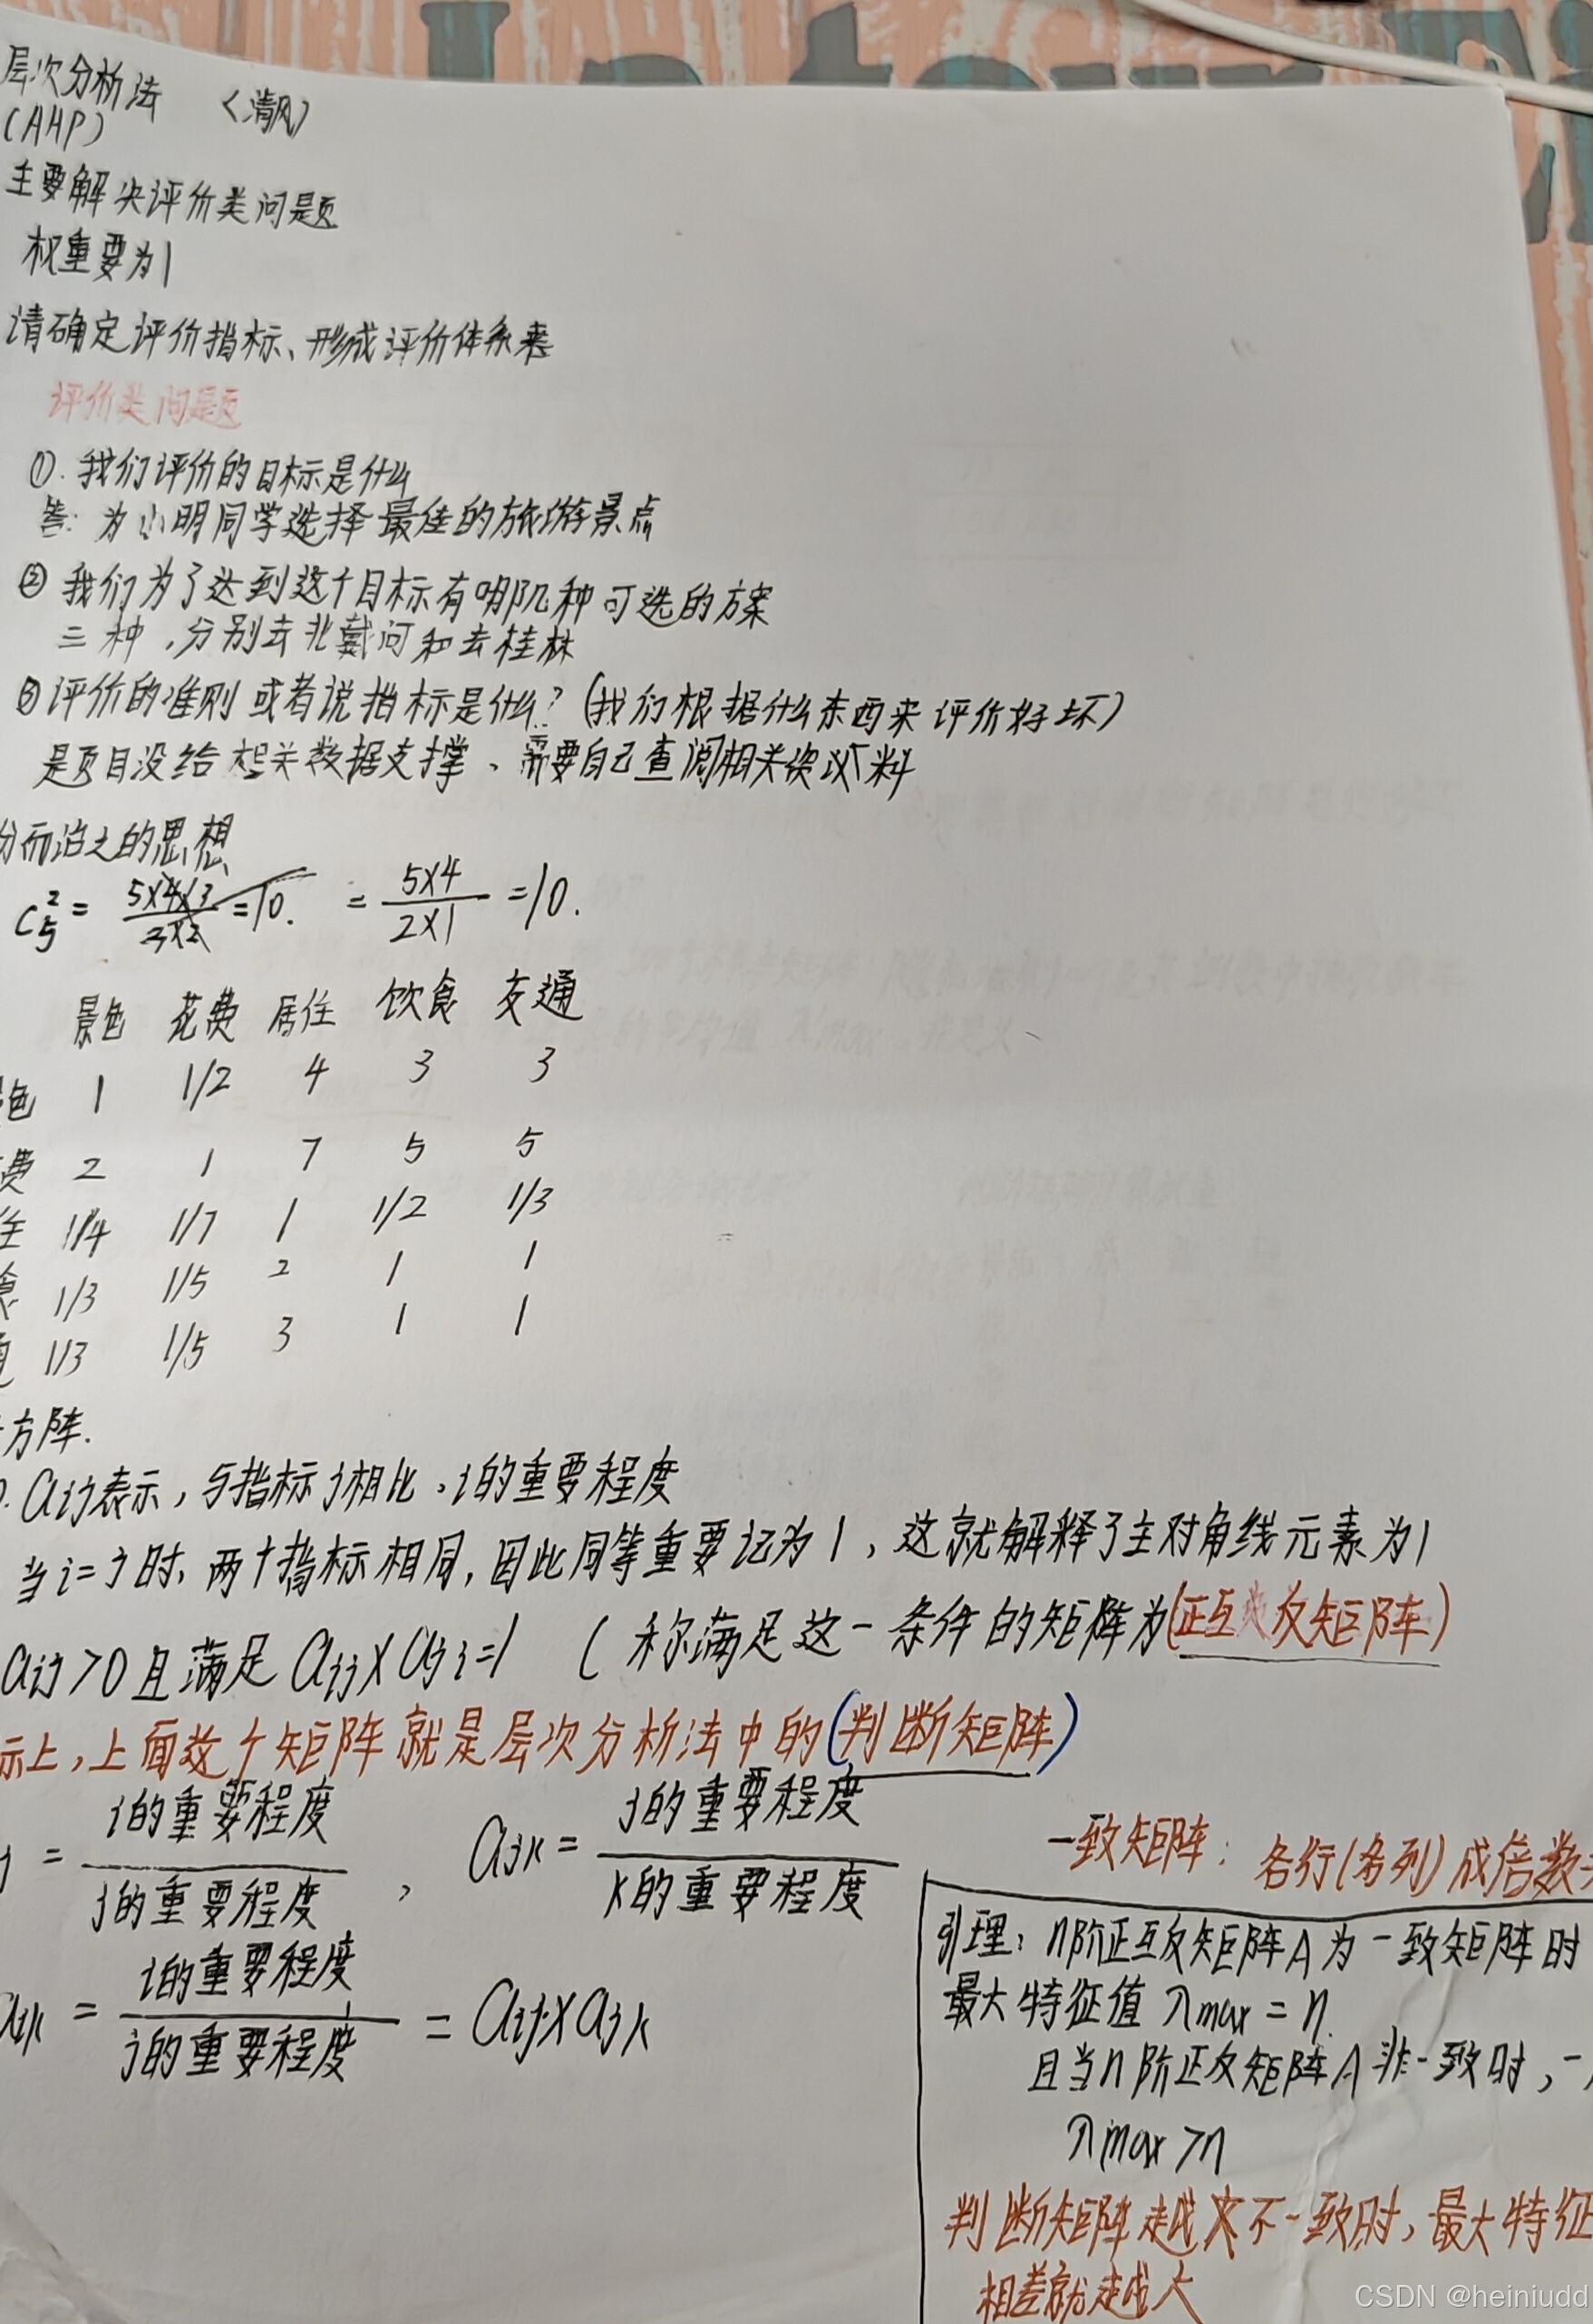 层次分析法 〈清风〉
(AHP)
主要解决评价类问题
权重要为1
请确定评价指标、形成评价体系来
评价类问题
①. 我们评价的目标是什么
答: 为小明同学选择最佳的旅游景点
② 我们为了达到这个目标有哪几种可选的方案
三种,分别去北戴河和去桂林
③评价的准则或者说指标是什么?(我们根据什么东西来评价好坏)
是题目没给相关数据支撑、需要自己查阅相关资料
分而治之的思想
C₅² = 5×4×3/3×2 = 10. = 5×4/2×1 = 10.
景色 花费 居住 饮食 交通
色 1 1/2 4 3 3
费 2 1 7 5 5
住 1/4 1/7 1 1/2 1/3
食 1/3 1/5 2 1 1
通 1/3 1/5 3 1 1
方阵.
aij表示,与指标j相比,i的重要程度
当i=j时,两个指标相同,因此同等重要记为1,这就解释了主对角线元素为1
aij>0且满足aij×aji=1 (称满足这一条件的矩阵为(正互反矩阵)
际上,上面这个矩阵就是层次分析法中的(判断矩阵)
j = i的重要程度/j的重要程度 , ajk = j的重要程度/k的重要程度
aik = i的重要程度/j的重要程度 = aij×ajk
一致矩阵: 各行(各列)成倍数
引理: n阶正互反矩阵A为一致矩阵时
最大特征值 λmax = n.
且当n阶正反矩阵A非一致时,一
λmax>n
判断矩阵越不一致时,最大特征
相差就越大
CSDN @heiniudd